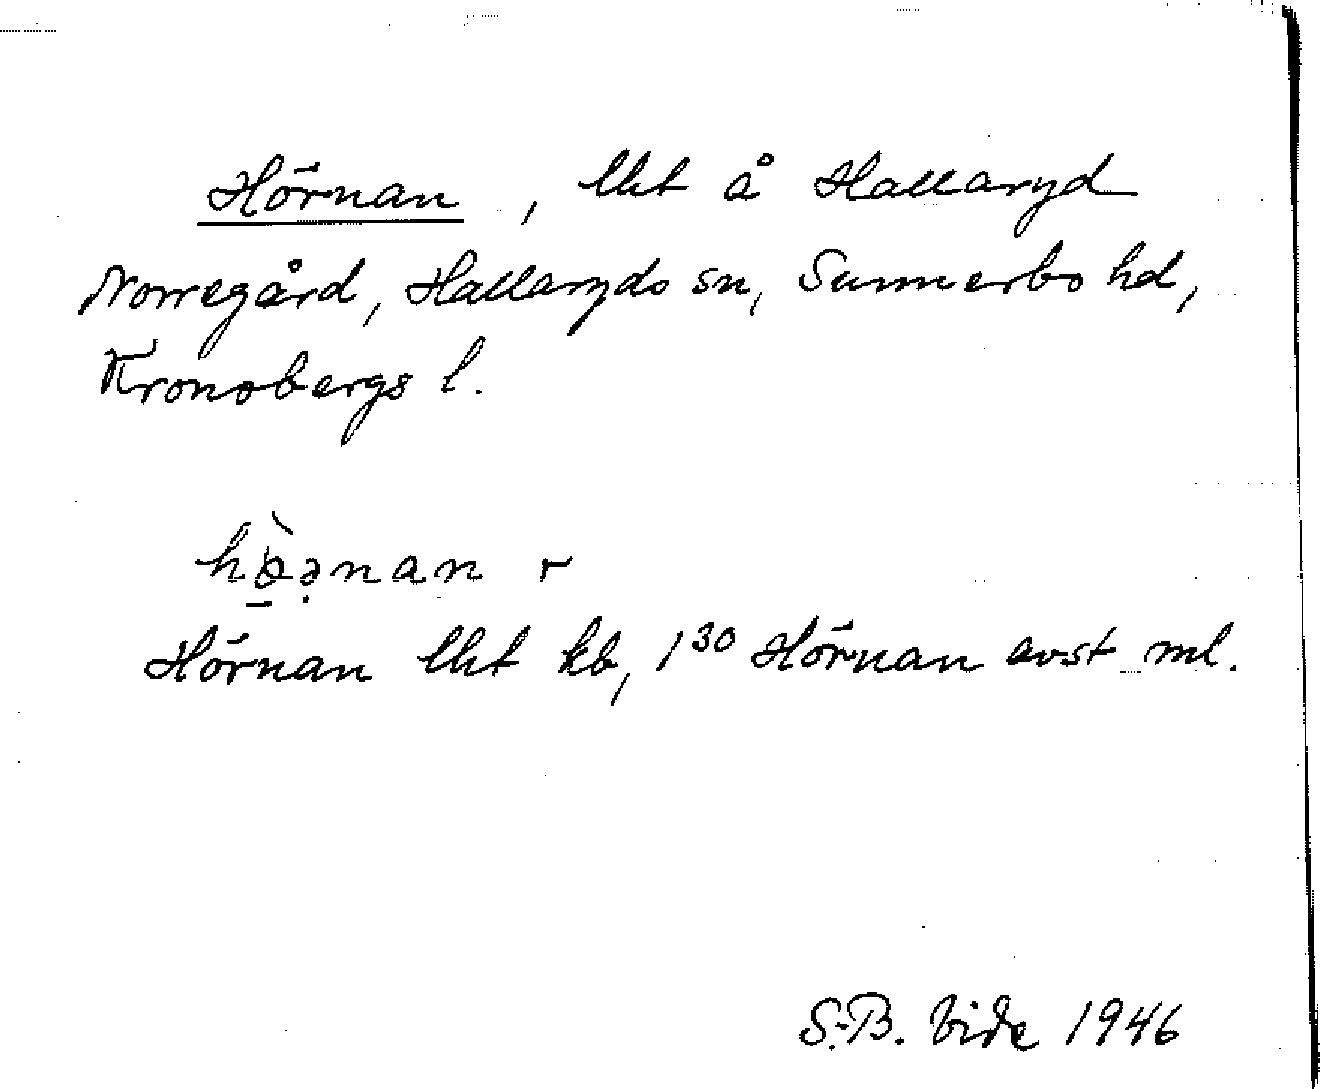 Hörnan, lht å Hallaryd
Norregård, Hallaryds sn, Sunnerbo hd,
Kronobergs l.
Hörnan lht kb, 1³⁰ Hörnan avst ml.
S.-B. Vide 1946